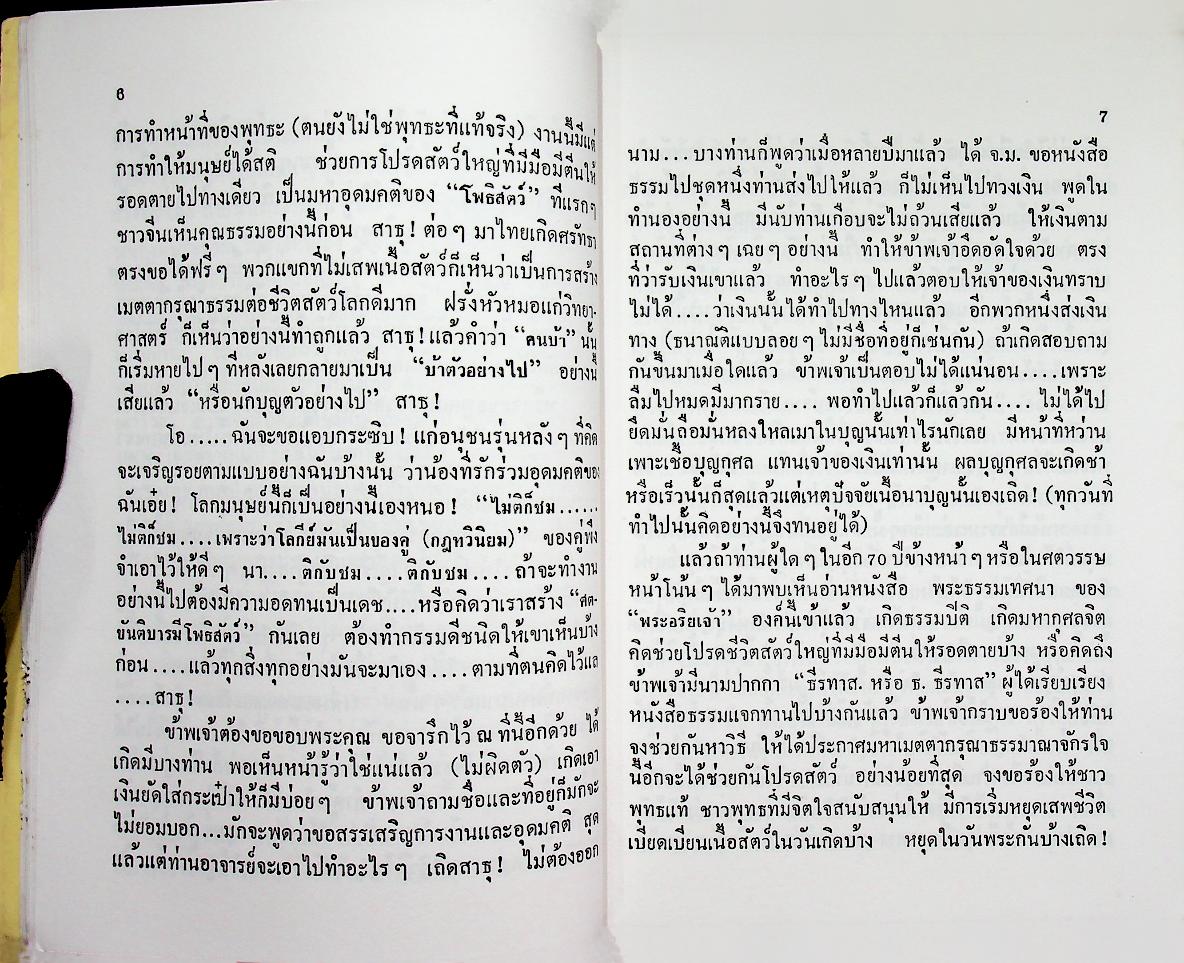 6
การทำหน้าที่ของพุทธะ (ตนยังไม่ใช่พุทธะที่แท้จริง) งานนี้มีแต่
การทำให้มนุษย์ได้สติ ช่วยการโปรดสัตว์ใหญ่ที่มีมือมีตีนให้
รอดตายไปทางเดียว เป็นมหาอุดมคติของ “โพธิสัตว์” ที่แรกๆ
ชาวจีนเห็นคุณธรรมอย่างนี้ก่อน สาธุ! ต่อๆ มาไทยเกิดศรัทธา
ตรงขอได้ฟรีๆ พวกแขกที่ไม่เสพเนื้อสัตว์ก็เห็นว่าเป็นการสร้าง
เมตตากรุณาธรรมต่อชีวิตสัตว์โลกดีมาก ฝรั่งหัวหมอแก่วิทยา-
ศาสตร์ ก็เห็นว่าอย่างนี้ทำถูกแล้ว สาธุ! แล้วคำว่า “คนบ้า” นั้น
ก็เริ่มหายไปๆ ที่หลังเลยกลายมาเป็น “บ้าตัวอย่างไป” อย่างนี้
เสียแล้ว “หรือนักบุญตัวอย่างไป” สาธุ!
โอ.....ฉันจะขอแอบกระซิบ! แก่อนุชนรุ่นหลังๆ ที่คิด
จะเจริญรอยตามแบบอย่างฉันบ้างนั้น ว่าน้องที่รักร่วมอุดมคติของ
ฉันเอ๋ย! โลกมนุษย์นี้ก็เป็นอย่างนี้เองหนอ! “ไม่ติก็ชม......
ไม่ติก็ชม....เพราะว่าโลกีย์มันเป็นของคู่ (กฎทวินิยม)” ของคู่พึง
จำเอาไว้ให้ดีๆ นา....ติกับชม....ติกับชม....ถ้าจะทำงาน
อย่างนี้ไปต้องมีความอดทนเป็นเดช....หรือคิดว่าเราสร้าง “ศต-
ขันติบารมีโพธิสัตว์” กันเลย ต้องทำกรรมดีชนิดให้เขาเห็นบ้าง
ก่อน....แล้วทุกสิ่งทุกอย่างมันจะมาเอง....ตามที่ตนคิดไว้แล
....สาธุ!
ข้าพเจ้าต้องขอขอบพระคุณ ขอจารึกไว้ ณ ที่นี้อีกด้วย ได้
เกิดมีบางท่าน พอเห็นหน้ารู้ว่าใช่แน่แล้ว (ไม่ผิดตัว) เกิดเอา
เงินยัดใส่กระเป๋าให้ก็มีบ่อยๆ ข้าพเจ้าถามชื่อและที่อยู่ก็มักจะ
ไม่ยอมบอก...มักจะพูดว่าขอสรรเสริญการงานและอุดมคติ สุด
แล้วแต่ท่านอาจารย์จะเอาไปทำอะไรๆ เถิดสาธุ! ไม่ต้องออก
7
นาม...บางท่านก็พูดว่าเมื่อหลายปีมาแล้ว ได้ จ.ม. ขอหนังสือ
ธรรมไปชุดหนึ่งท่านส่งไปให้แล้ว ก็ไม่เห็นไปทวงเงิน พูดใน
ทำนองอย่างนี้ มีนับท่านเกือบจะไม่ถ้วนเสียแล้ว ให้เงินตาม
สถานที่ต่างๆ เฉยๆ อย่างนี้ ทำให้ข้าพเจ้าอึดอัดใจด้วย ตรง
ที่ว่ารับเงินเขาแล้ว ทำอะไรๆ ไปแล้วตอบให้เจ้าของเงินทราบ
ไม่ได้....ว่าเงินนั้นได้ทำไปทางไหนแล้ว อีกพวกหนึ่งส่งเงิน
ทาง (ธนาณัติแบบลอยๆ ไม่มีชื่อที่อยู่ก็เช่นกัน) ถ้าเกิดสอบถาม
กันขึ้นมาเมื่อใดแล้ว ข้าพเจ้าเป็นตอบไม่ได้แน่นอน....เพราะ
ลืมไปหมดมีมากราย.... พอทำไปแล้วก็แล้วกัน.... ไม่ได้ไป
ยึดมั่นถือมั่นหลงใหลเมาในบุญนั้นเท่าไรนักเลย มีหน้าที่หว่าน
เพาะเชื้อบุญกุศล แทนเจ้าของเงินเท่านั้น ผลบุญกุศลจะเกิดช้า
หรือเร็วนั้นก็สุดแล้วแต่เหตุปัจจัยเนื้อนาบุญนั้นเองเถิด! (ทุกวันที่
ทำไปนั้นคิดอย่างนี้จึงทนอยู่ได้)
แล้วถ้าท่านผู้ใดๆ ในอีก 70 ปีข้างหน้าๆ หรือในศตวรรษ
หน้าโน้นๆ ได้มาพบเห็นอ่านหนังสือ พระธรรมเทศนา ของ
“พระอริยเจ้า” องค์นี้เข้าแล้ว เกิดธรรมปีติ เกิดมหากุศลจิต
คิดช่วยโปรดชีวิตสัตว์ใหญ่ที่มีมือมีตีนให้รอดตายบ้าง หรือคิดถึง
ข้าพเจ้ามีนามปากกา “ธีรทาส. หรือ ธ. ธีรทาส” ผู้ได้เรียบเรียง
หนังสือธรรมแจกทานไปบ้างกันแล้ว ข้าพเจ้ากราบขอร้องให้ท่าน
จงช่วยกันหาวิธี ให้ได้ประกาศมหาเมตตากรุณาธรรมาณาจักรใจ
นี้อีกจะได้ช่วยกันโปรดสัตว์ อย่างน้อยที่สุด จงขอร้องให้ชาว
พุทธแท้ ชาวพุทธที่มีจิตใจสนับสนุนให้ มีการเริ่มหยุดเสพชีวิต
เบียดเบียนเนื้อสัตว์ในวันเกิดบ้าง หยุดในวันพระกันบ้างเถิด!